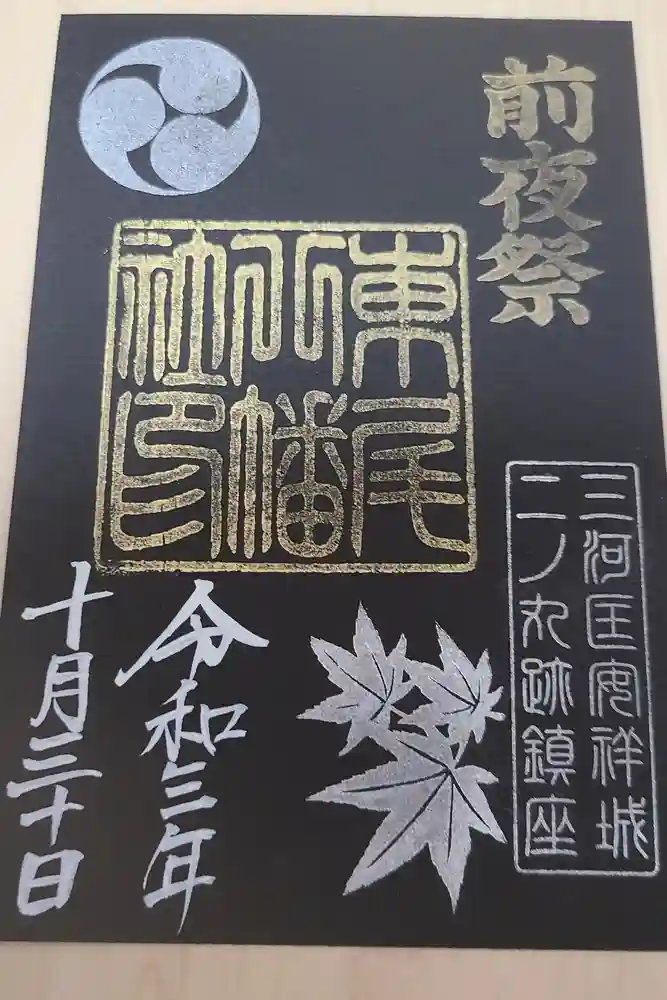 前夜祭
東尾
八幡
社印
三河国安祥城
二ノ丸跡鎮座
令和三年
十月三十日